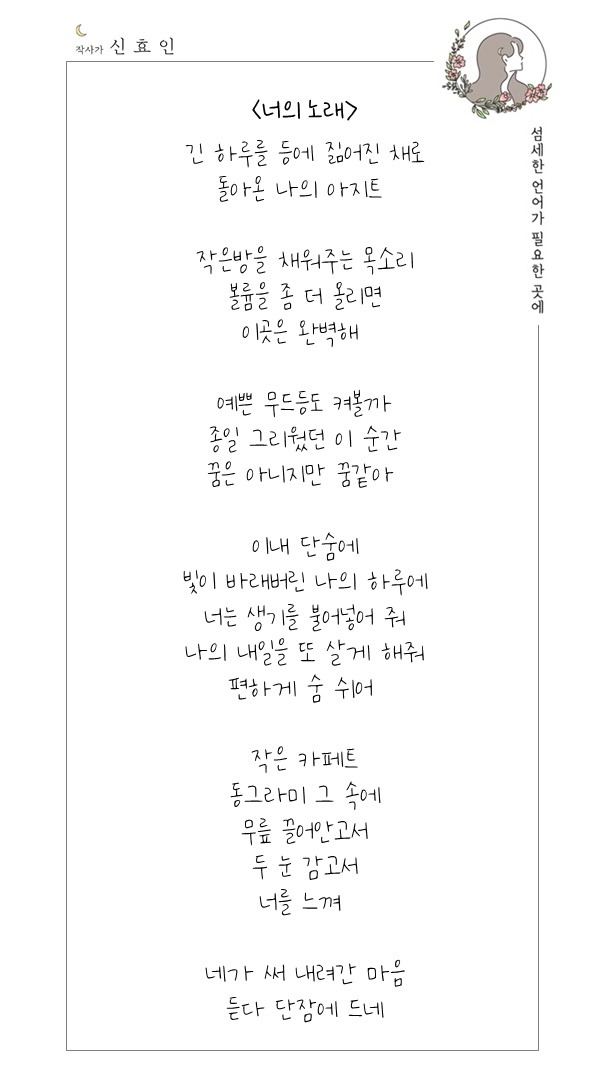 작사가 신효인
섬세한 언어가 필요한 곳에
<너의 노래>
긴 하루를 등에 짊어진 채로
돌아온 나의 아지트
작은방을 채워주는 목소리
볼륨을 좀 더 올리면
이곳은 완벽해
예쁜 무드등도 켜볼까
종일 그리웠던 이 순간
꿈은 아니지만 꿈같아
이내 단숨에
빛이 바래버린 나의 하루에
너는 생기를 불어넣어 줘
나의 내일을 또 살게 해줘
편하게 숨 쉬어
작은 카페트
동그라미 그 속에
무릎 끌어안고서
두 눈 감고서
너를 느껴
네가 써 내려간 마음
듣다 단잠에 드네